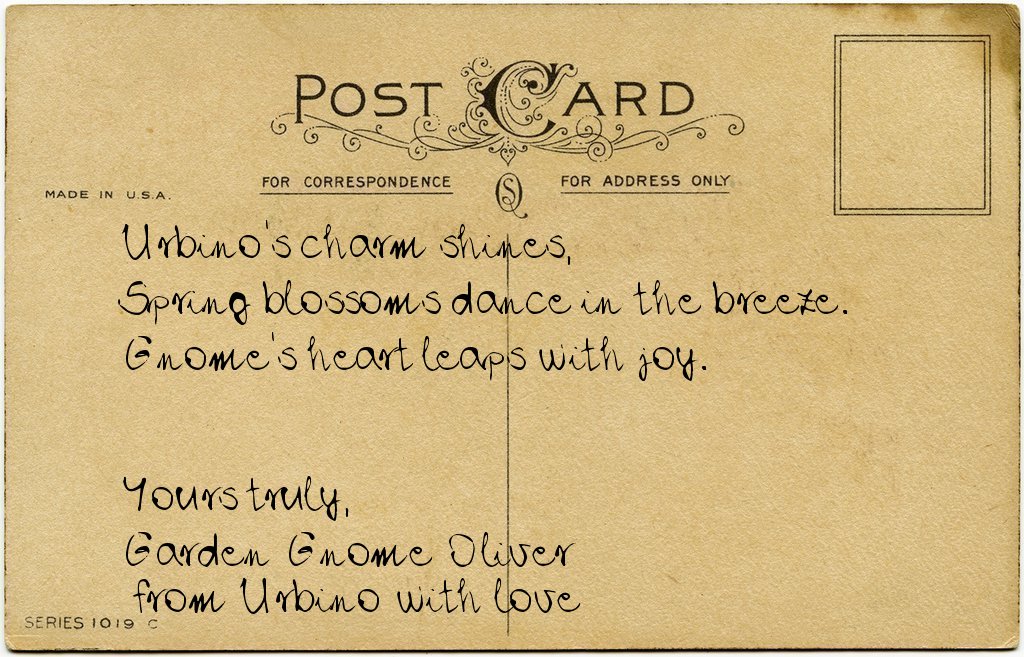 POST CARD
FOR CORRESPONDENCE
FOR ADDRESS ONLY
MADE IN U.S.A.
Urbino's charm shines,
Spring blossoms dance in the breeze.
Gnome's heart leaps with joy.
Yours truly,
Garden Gnome Oliver
from Urbino with love
SERIES 1019 C